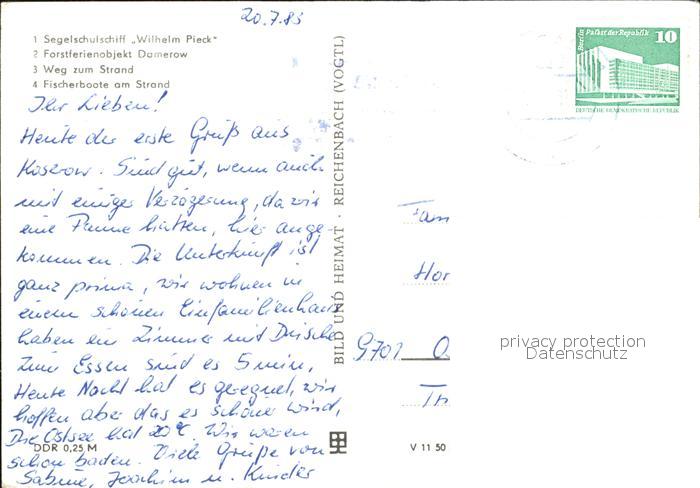 20.7.83
1 Segelschulschiff „Wilhelm Pieck"
2 Forstferienobjekt Damerow
3 Weg zum Strand
4 Fischerboote am Strand
Ihr Lieben!
Heute der erste Gruß aus
Koserow. Sind gut, wenn auch
mit einiger Verzögerung, da wir
eine Panne hatten, hier ange-
kommen. Die Unterkunft ist
ganz prima, wir wohnen in
einem schönen Einfamilienhaus
haben ein Zimmer mit Dusche
Zum Essen sind es 5 min,
Heute Nacht hat es geregnet, wir
hoffen aber das es schöne wird,
Die Ostsee hat 20°C. Wir waren
schon baden. Viele Grüße von
Sabine, Joachim u. Kinder
DDR 0,25 M
BILD UND HEIMAT · REICHENBACH (VOGTL)
V 11 50
Berlin Palast der Republik 10
DEUTSCHE DEMOKRATISCHE REPUBLIK
Fam
Hor
9701 O
Th
privacy protection
Datenschutz